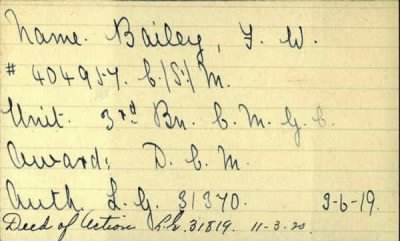 Name. Bailey, F. W.
# 404957. C/S/M.
Unit. 3rd Bn. C. M. G. C.
Award: D. C. M.
Auth. L. G. 31370. 3-6-19.
Deed of Action L.G. 31819. 11-3-20.